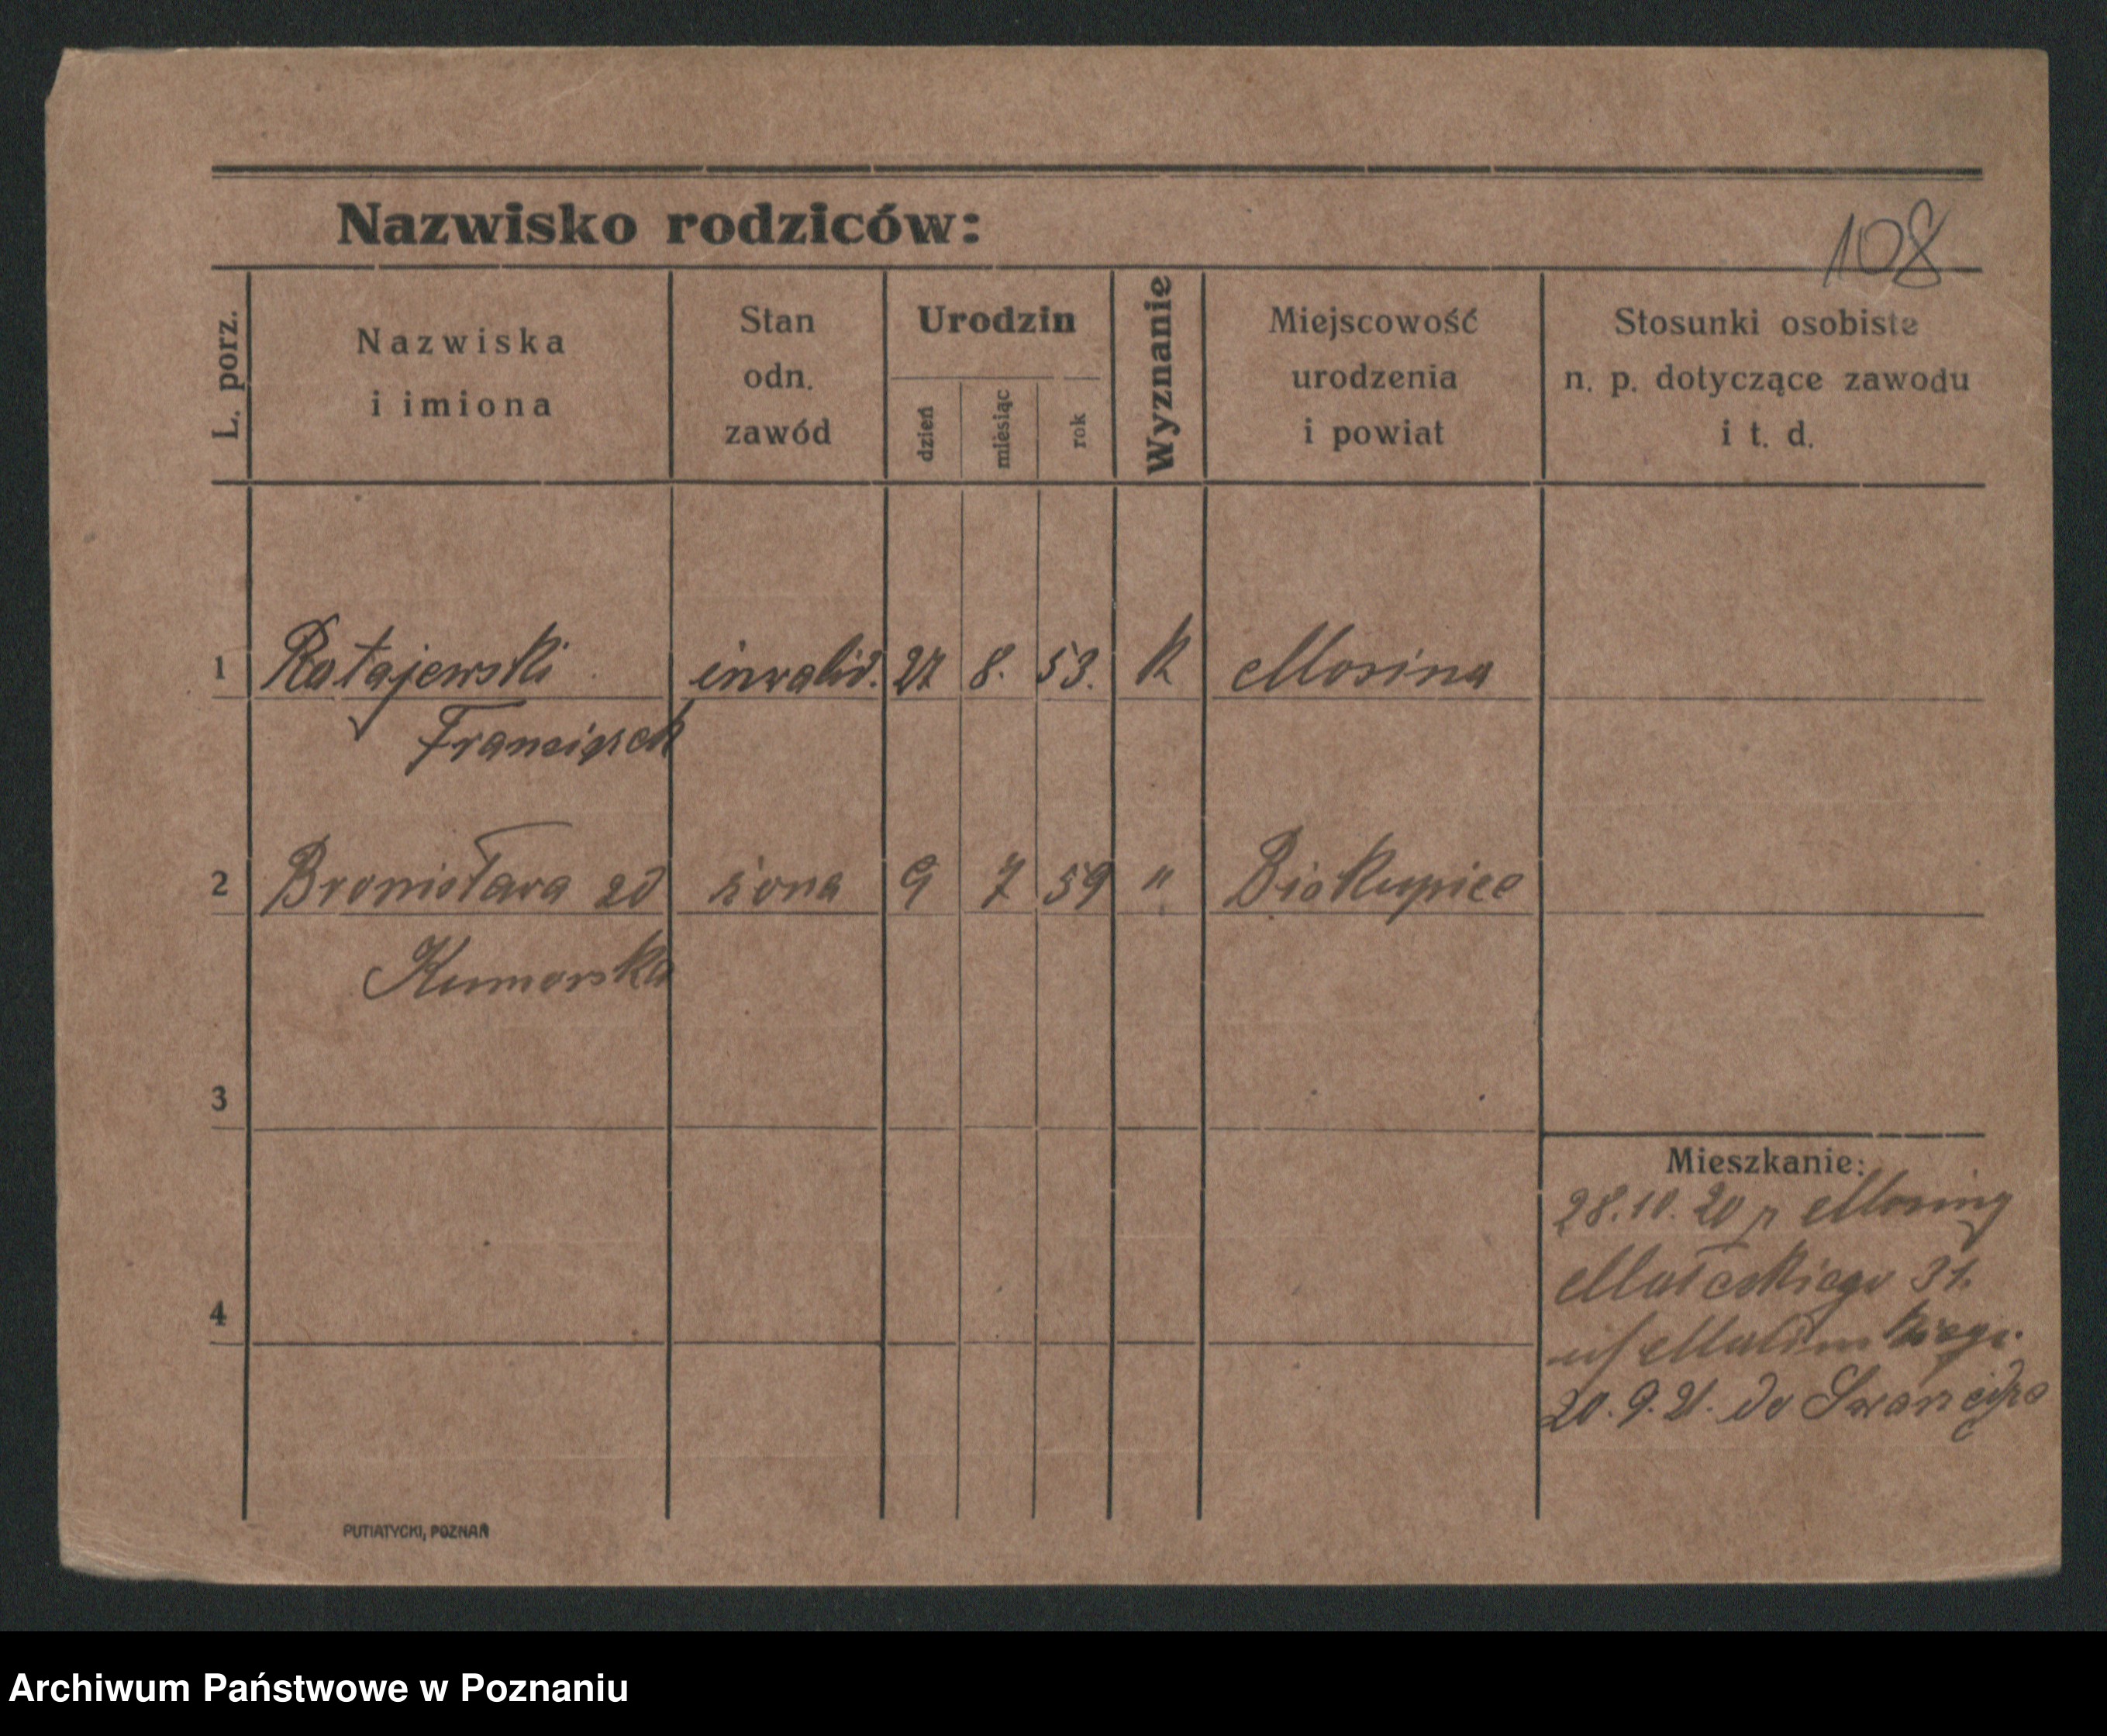 Nazwisko rodziców:
108
L. porz.
Nazwiska
i imiona
Stan
odn.
zawód
Urodzin
dzień
miesiąc
rok
Wyznanie
Miejscowość
urodzenia
i powiat
Stosunki osobiste
n. p. dotyczące zawodu
i t. d.
1 Ratajewski inwalid. 27 8. 53. k Mosina
Franciszek
2 Bronisława zd żona 9 7 59 " Biskupice
Kumorska
3
4
Mieszkanie:
28.10.20 z Mosiny
Małeckiego 31.
20.9.21. do Swarzędza
PUTIATYCKI, POZNAŃ
Archiwum Państwowe w Poznaniu